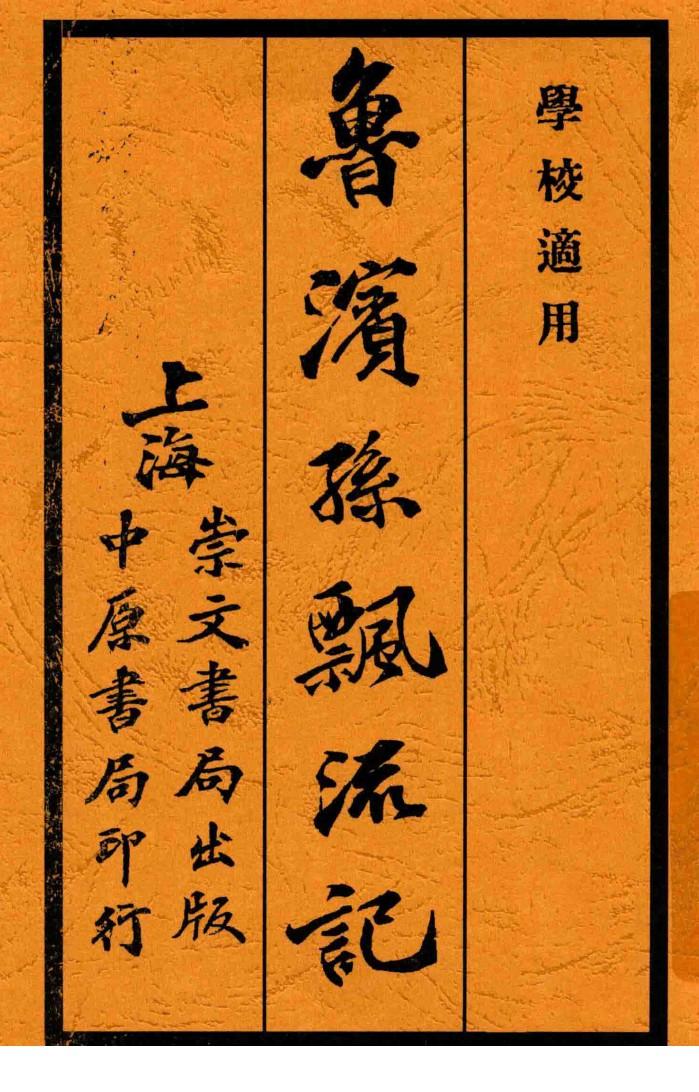 學校適用
魯濱孫飄流記
上海
崇文書局出版
中原書局印行